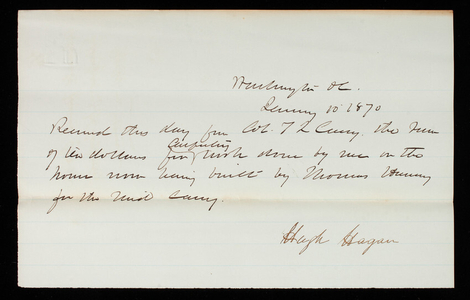 Washington DC.
January 10. 1870
Received this day from Col. T L Casey the sum
carpentry
of ten dollars for work done by me on the
house now being built by Thomas
for the said Casey.
Hugh Hagan